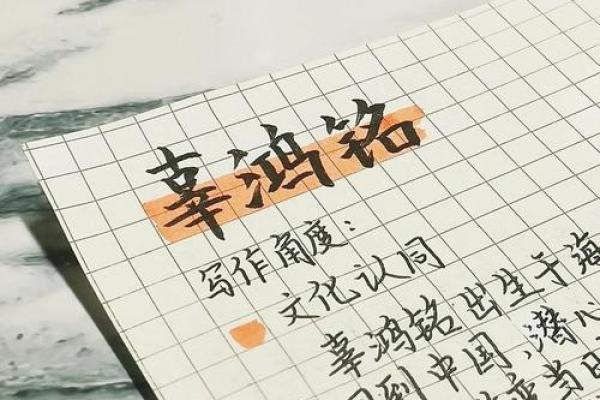 辜鸿铭
写作角度：
文化认同
辜鸿铭出生于海
回到中国，潜心